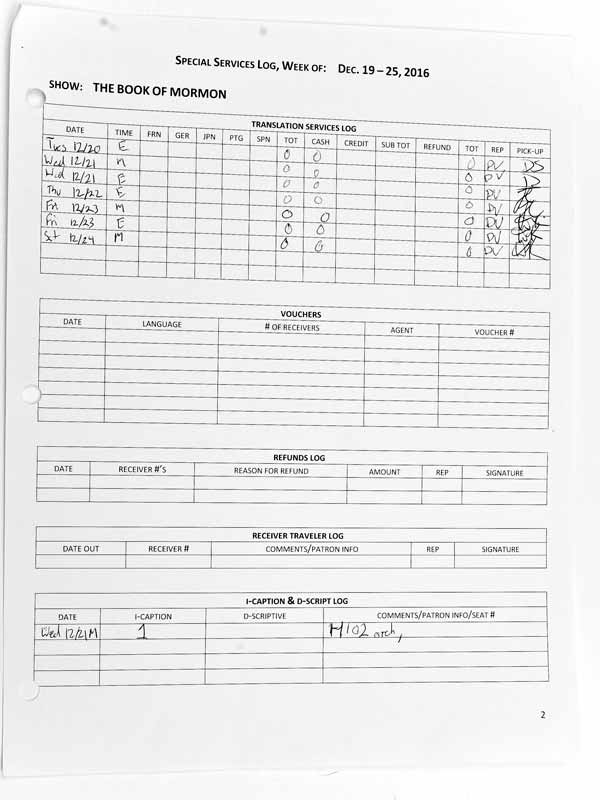 SPECIAL SERVICES LOG, WEEK OF: DEC. 19 – 25, 2016
SHOW: THE BOOK OF MORMON
TRANSLATION SERVICES LOG
DATE TIME FRN GER JPN PTG SPN TOT CASH CREDIT SUB TOT REFUND TOT REP PICK-UP
Tues 12/20 E 0 0 0 DV DS
Wed 12/21 M 0 0 0 DV D
Wed 12/21 E 0 0 0 DV
Thu 12/22 E 0 0 0 DV
Fri 12/23 M 0 0 0 DV
Fri 12/23 E 0 0 0 DV
Sat 12/24 M 0 0 0 DV
VOUCHERS
DATE LANGUAGE # OF RECEIVERS AGENT VOUCHER #
REFUNDS LOG
DATE RECEIVER #'S REASON FOR REFUND AMOUNT REP SIGNATURE
RECEIVER TRAVELER LOG
DATE OUT RECEIVER # COMMENTS/PATRON INFO REP SIGNATURE
I-CAPTION & D-SCRIPT LOG
DATE I-CAPTION D-SCRIPTIVE COMMENTS/PATRON INFO/SEAT #
Wed 12/21 M 1 H102 orch,
2